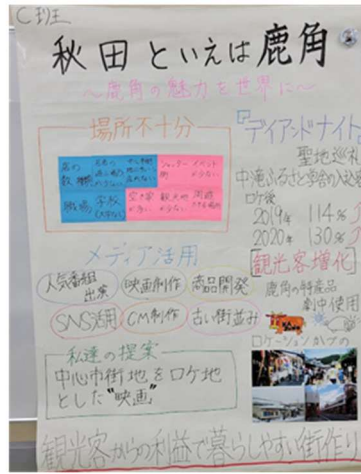 C班
秋田といえば鹿角
～鹿角の魅力を世界に～
場所不十分
店の
職場
学校
シャッター
街
イベント
が少ない
空き家
が多い
観光地
が少ない
メディア活用
人気番組
出演
映画制作
商品開発
SNS活用
CM制作
古い街並み
私達の提案
中心市街地をロケ地
とした"映画"
『デイアンドナイト
聖地巡礼
中滝ふるさと学舎の入込
ロケ後
2019年 114%
2020年 130%
観光客増化
鹿角の特産品
劇中使用
ロケーションが
観光客からの利益で暮らしやすい街作り